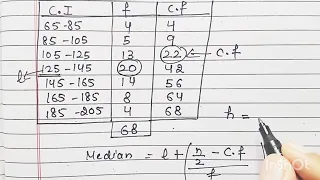 C.I f C.f
65-85 4 4
85-105 5 9
105-125 13 22 ← C.f
l 125-145 20 42
145-165 14 56
165-185 8 64
185-205 4 68
68
h =
Median = l + ( n/2 - C.f / f